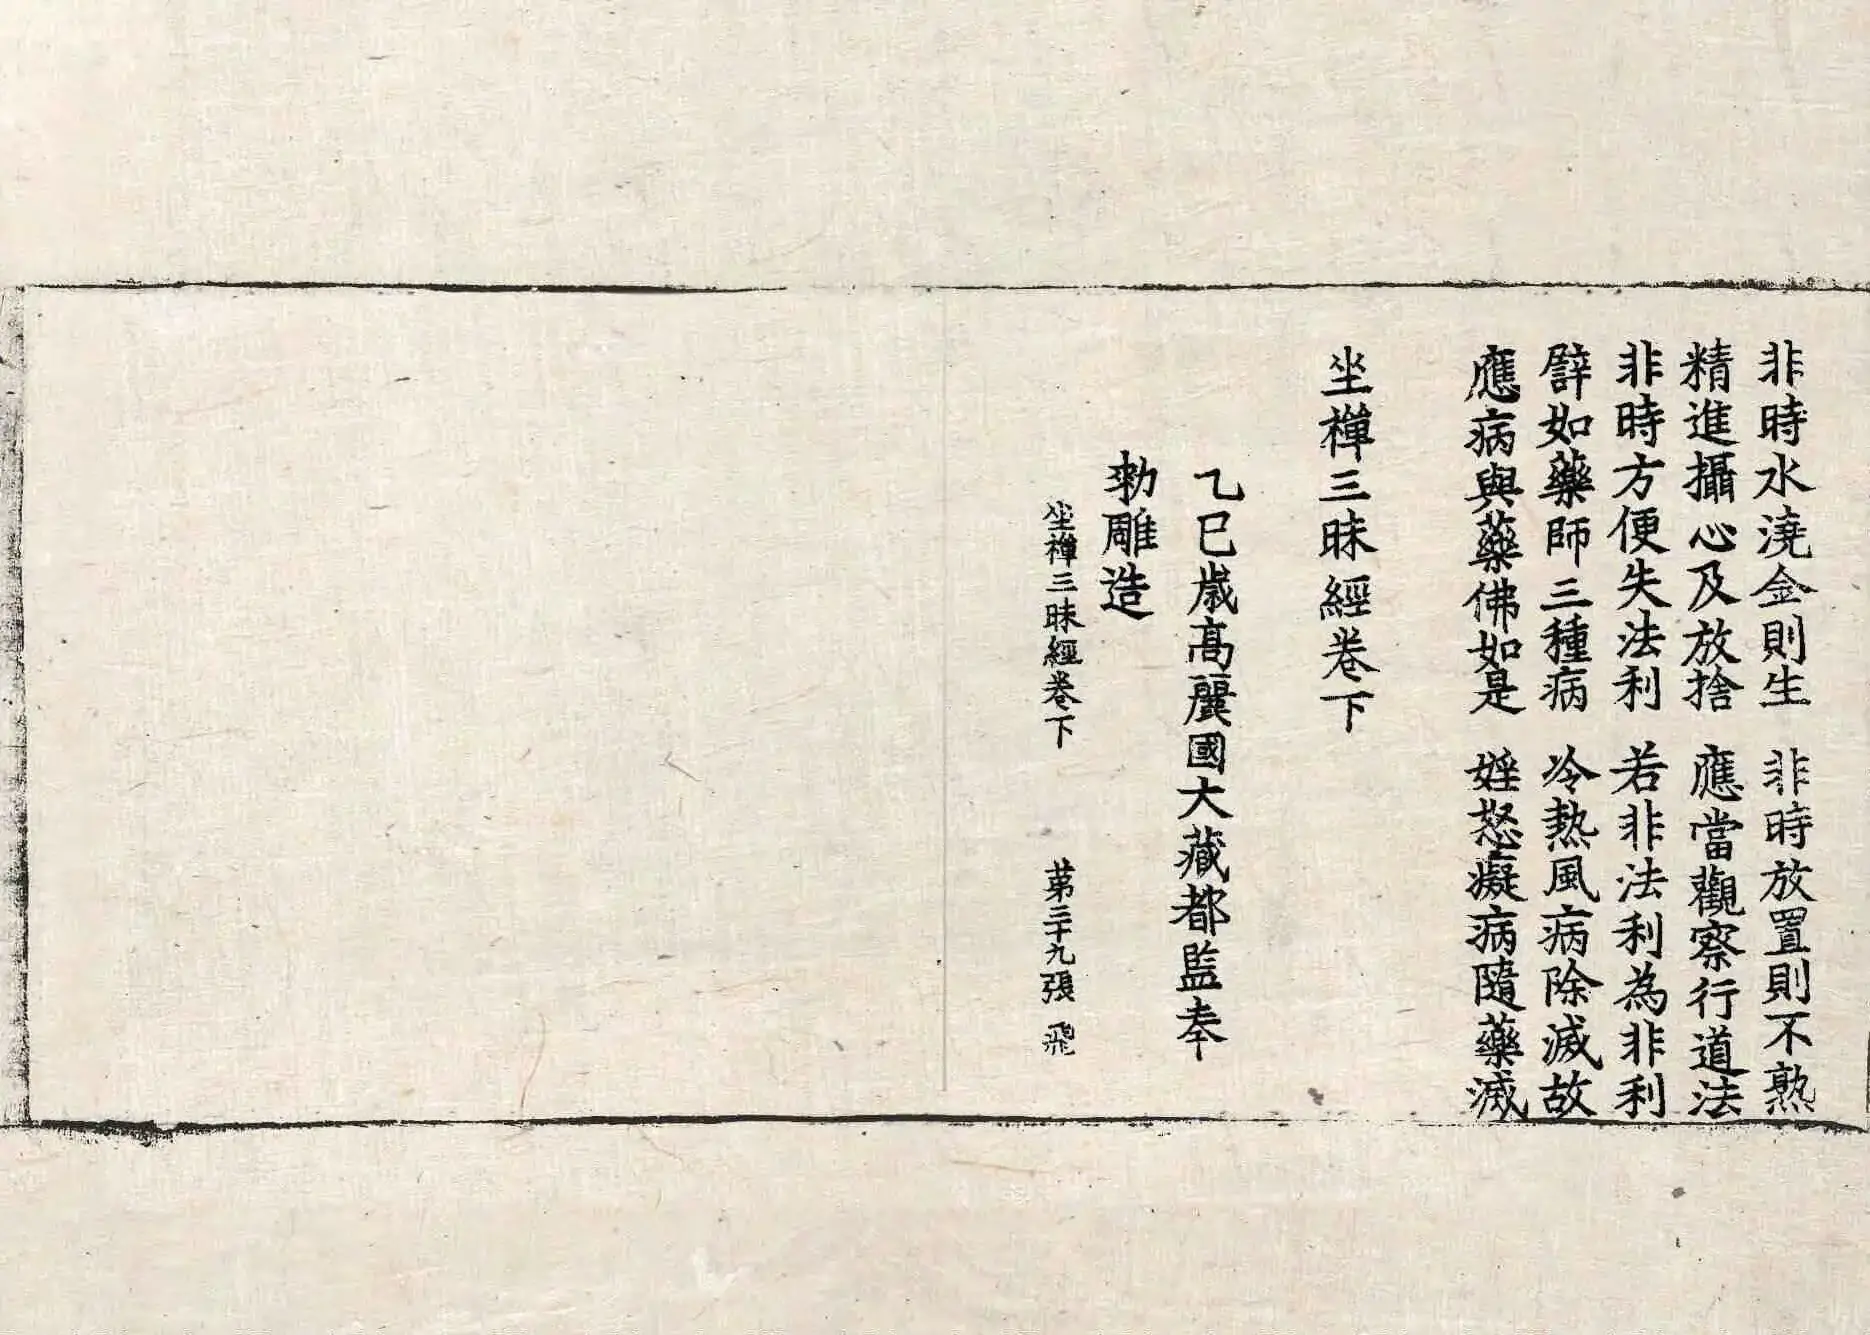 非時水澆金則生 非時放置則不熟
精進攝心及放捨 應當觀察行道法
非時方便失法利 若非法利為非利
譬如藥師三種病 冷熱風病除滅故
應病與藥佛如是 婬怒癡病隨藥滅
坐禪三昧經卷下
乙巳歲高麗國大藏都監奉
勅雕造
坐禪三昧經卷下 第三十九張 飛